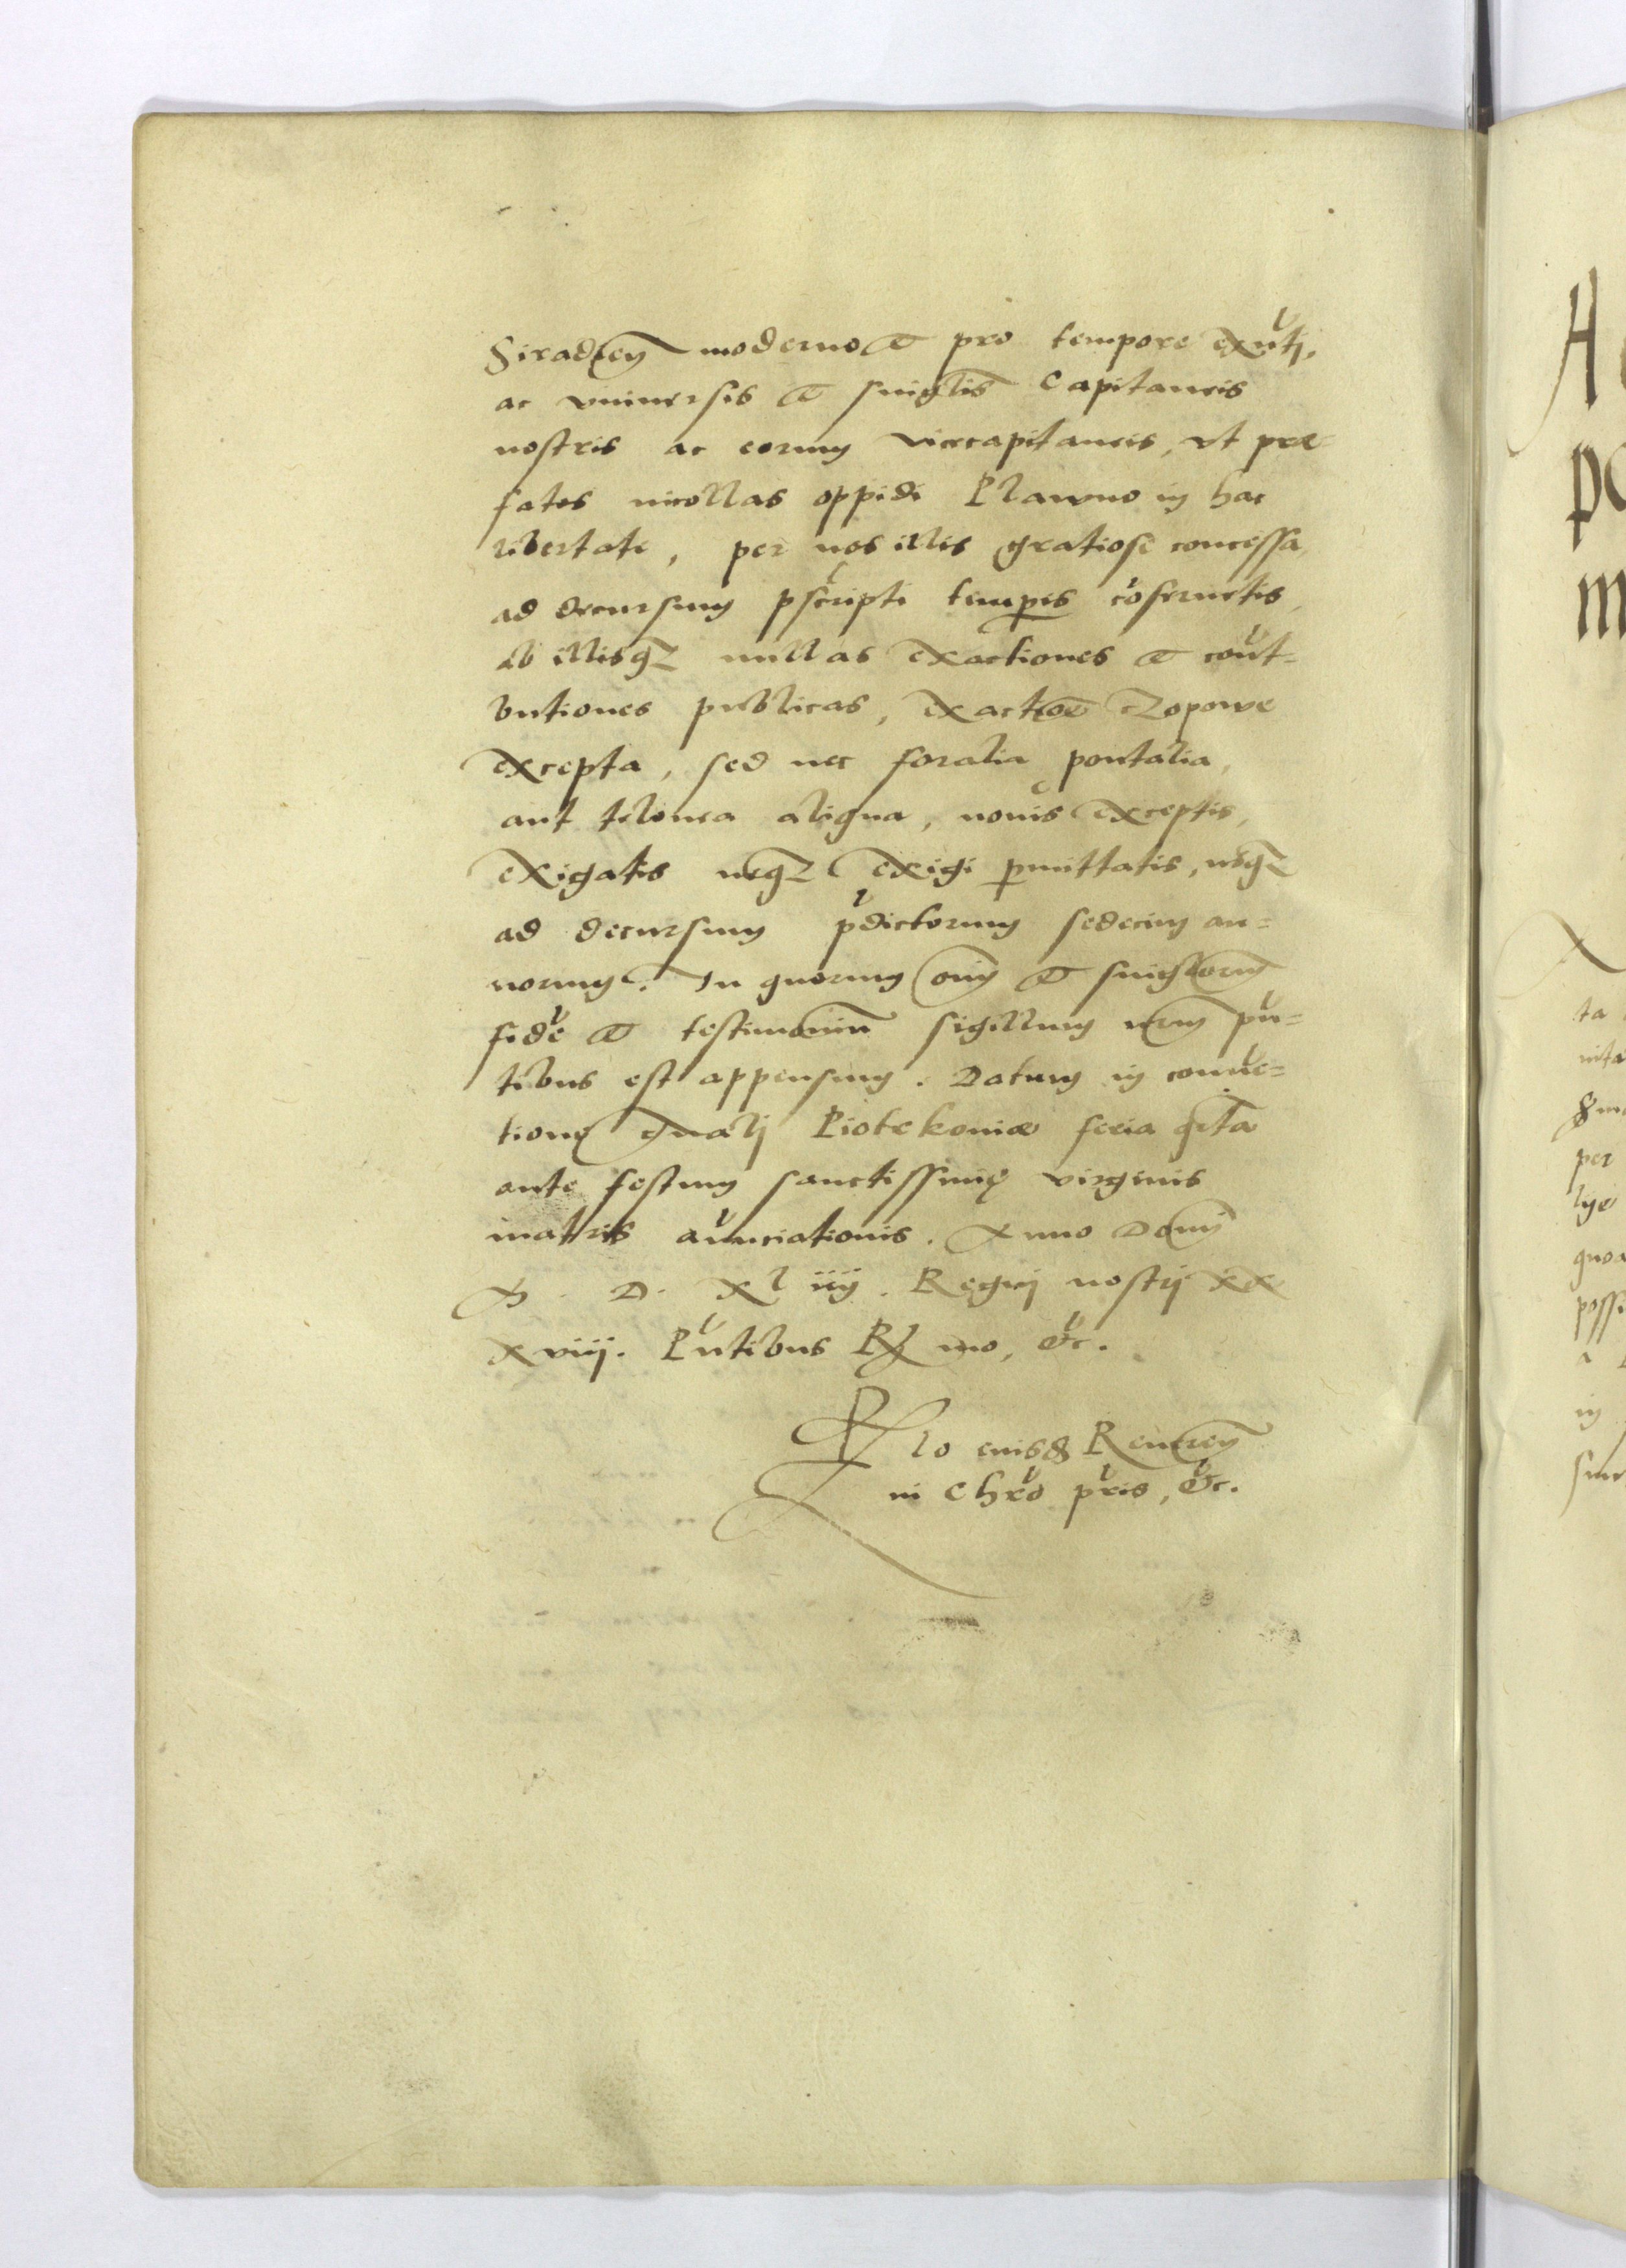 Siradień moderno et pro tempore exñti,
ac vniuersis et singlis Capitaneis
nostris ac eorum vicecapitaneis, vt præ
fatos incollas oppidi Plawno in hac
libertate, per nos illis gratiose concessa,
ad decursum pscripti temporis cõseruetis,
ab illisq3 nullas exactiones et contr-
butiones publicas, exactioe Czopowe
excepta, sed nec foralia pontalia,
aut telonea aliqua, nouis exceptis,
exigatis neq3 exigi pmittatis, usq3
ad decursum pdictorum sedecim an=
norum. In quorum oim et singlorum
fidẽ et testimoniũ sigillum nrm pñ=
tibus est appensum. Datum in conuẽ=
tione gnali Piotrkouiæ feria qrta
ante festum sanctissimę virginis
matris anunciationis. Anno Domi
M. D. xl iiij. Regni nostri xx
xviij. Pñtibus Rmo, &c.
Rlo eiusd Reueren
in Chro pris, &c.
A
po
m
ta
per
lye
quo
possi
in